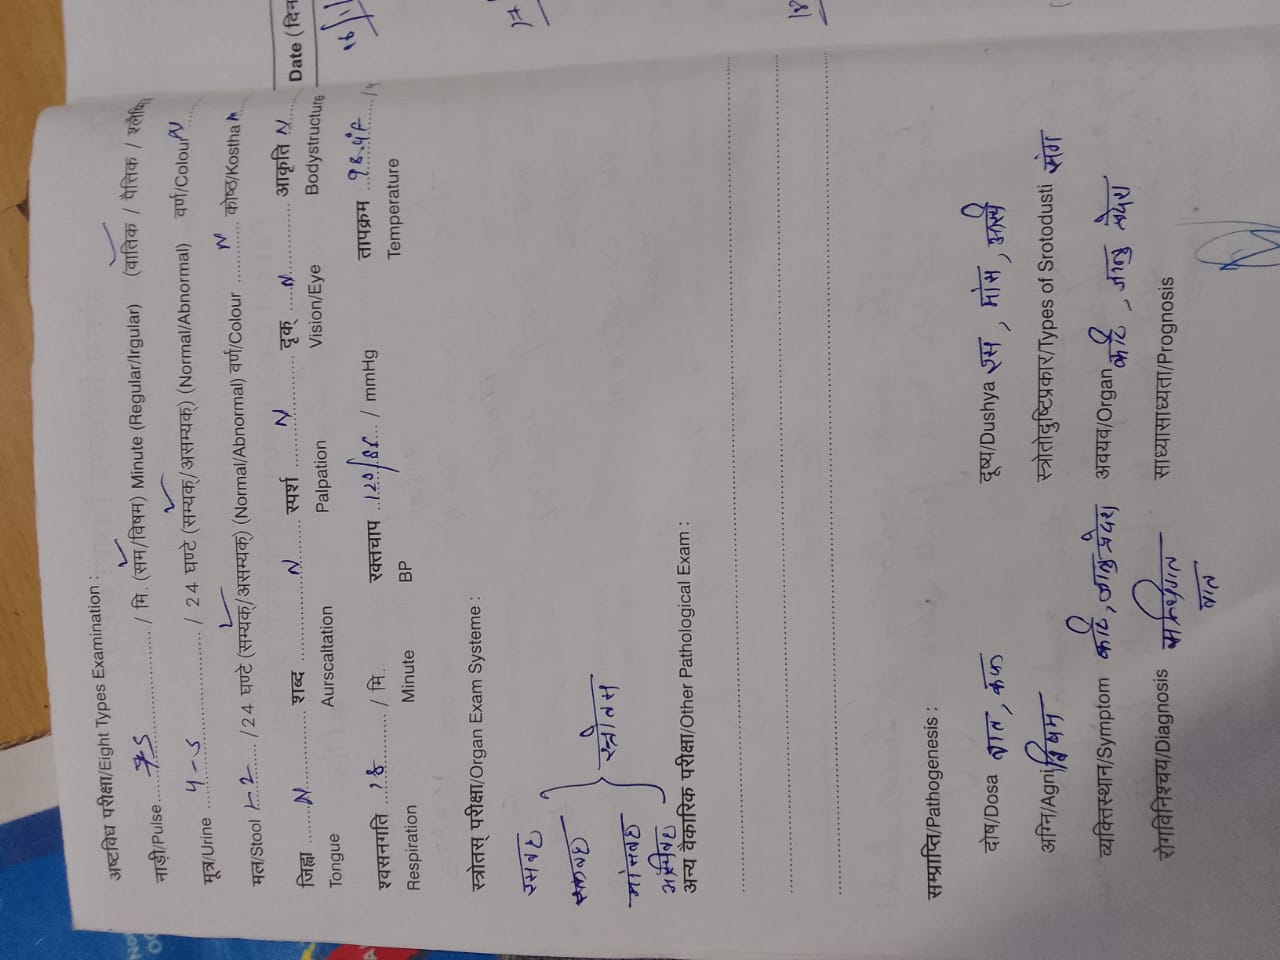 अष्टविध परीक्षा/Eight Types Examination :
नाड़ी/Pulse 75 / मि. (सम/विषम) Minute (Regular/Irgular) (वातिक / पैत्तिक / श्लैष्मि
मूत्र/Urine 4-5 / 24 घण्टे (सम्यक्/असम्यक्) (Normal/Abnormal) वर्ण/Colour N
मल/Stool 1-2 /24 घण्टे (सम्यक्/असम्यक्) (Normal/Abnormal) वर्ण/Colour N कोष्ठ/Kostha N
जिह्वा N शब्द N स्पर्श N दृक् N आकृति N
Tongue Aurscaltation Palpation Vision/Eye Bodystructure
Date (दिन
16/1/
श्वसनगति 18 / मि. रक्तचाप 120/ / mmHg तापक्रम 98.4°F
Respiration Minute BP Temperature
स्त्रोतस् परीक्षा/Organ Exam Systeme :
रसवह
रक्तवह
स्त्रोतस
मांसवह
अस्थिवह
अन्य वैकारिक परीक्षा/Other Pathological Exam :
17
18
सम्प्राप्ति/Pathogenesis :
दोष/Dosa वात, कफ दूष्य/Dushya रस, मांस, अस्थि
अग्नि/Agni विषम स्त्रोतोदुष्टिप्रकार/Types of Srotodusti संग
व्यक्तिस्थान/Symptom कटि, जानु प्रदेश अवयव/Organ कटि, जानु प्रदेश
रोगविनिश्चय/Diagnosis सन्धिगत साध्यासाध्यता/Prognosis
वात